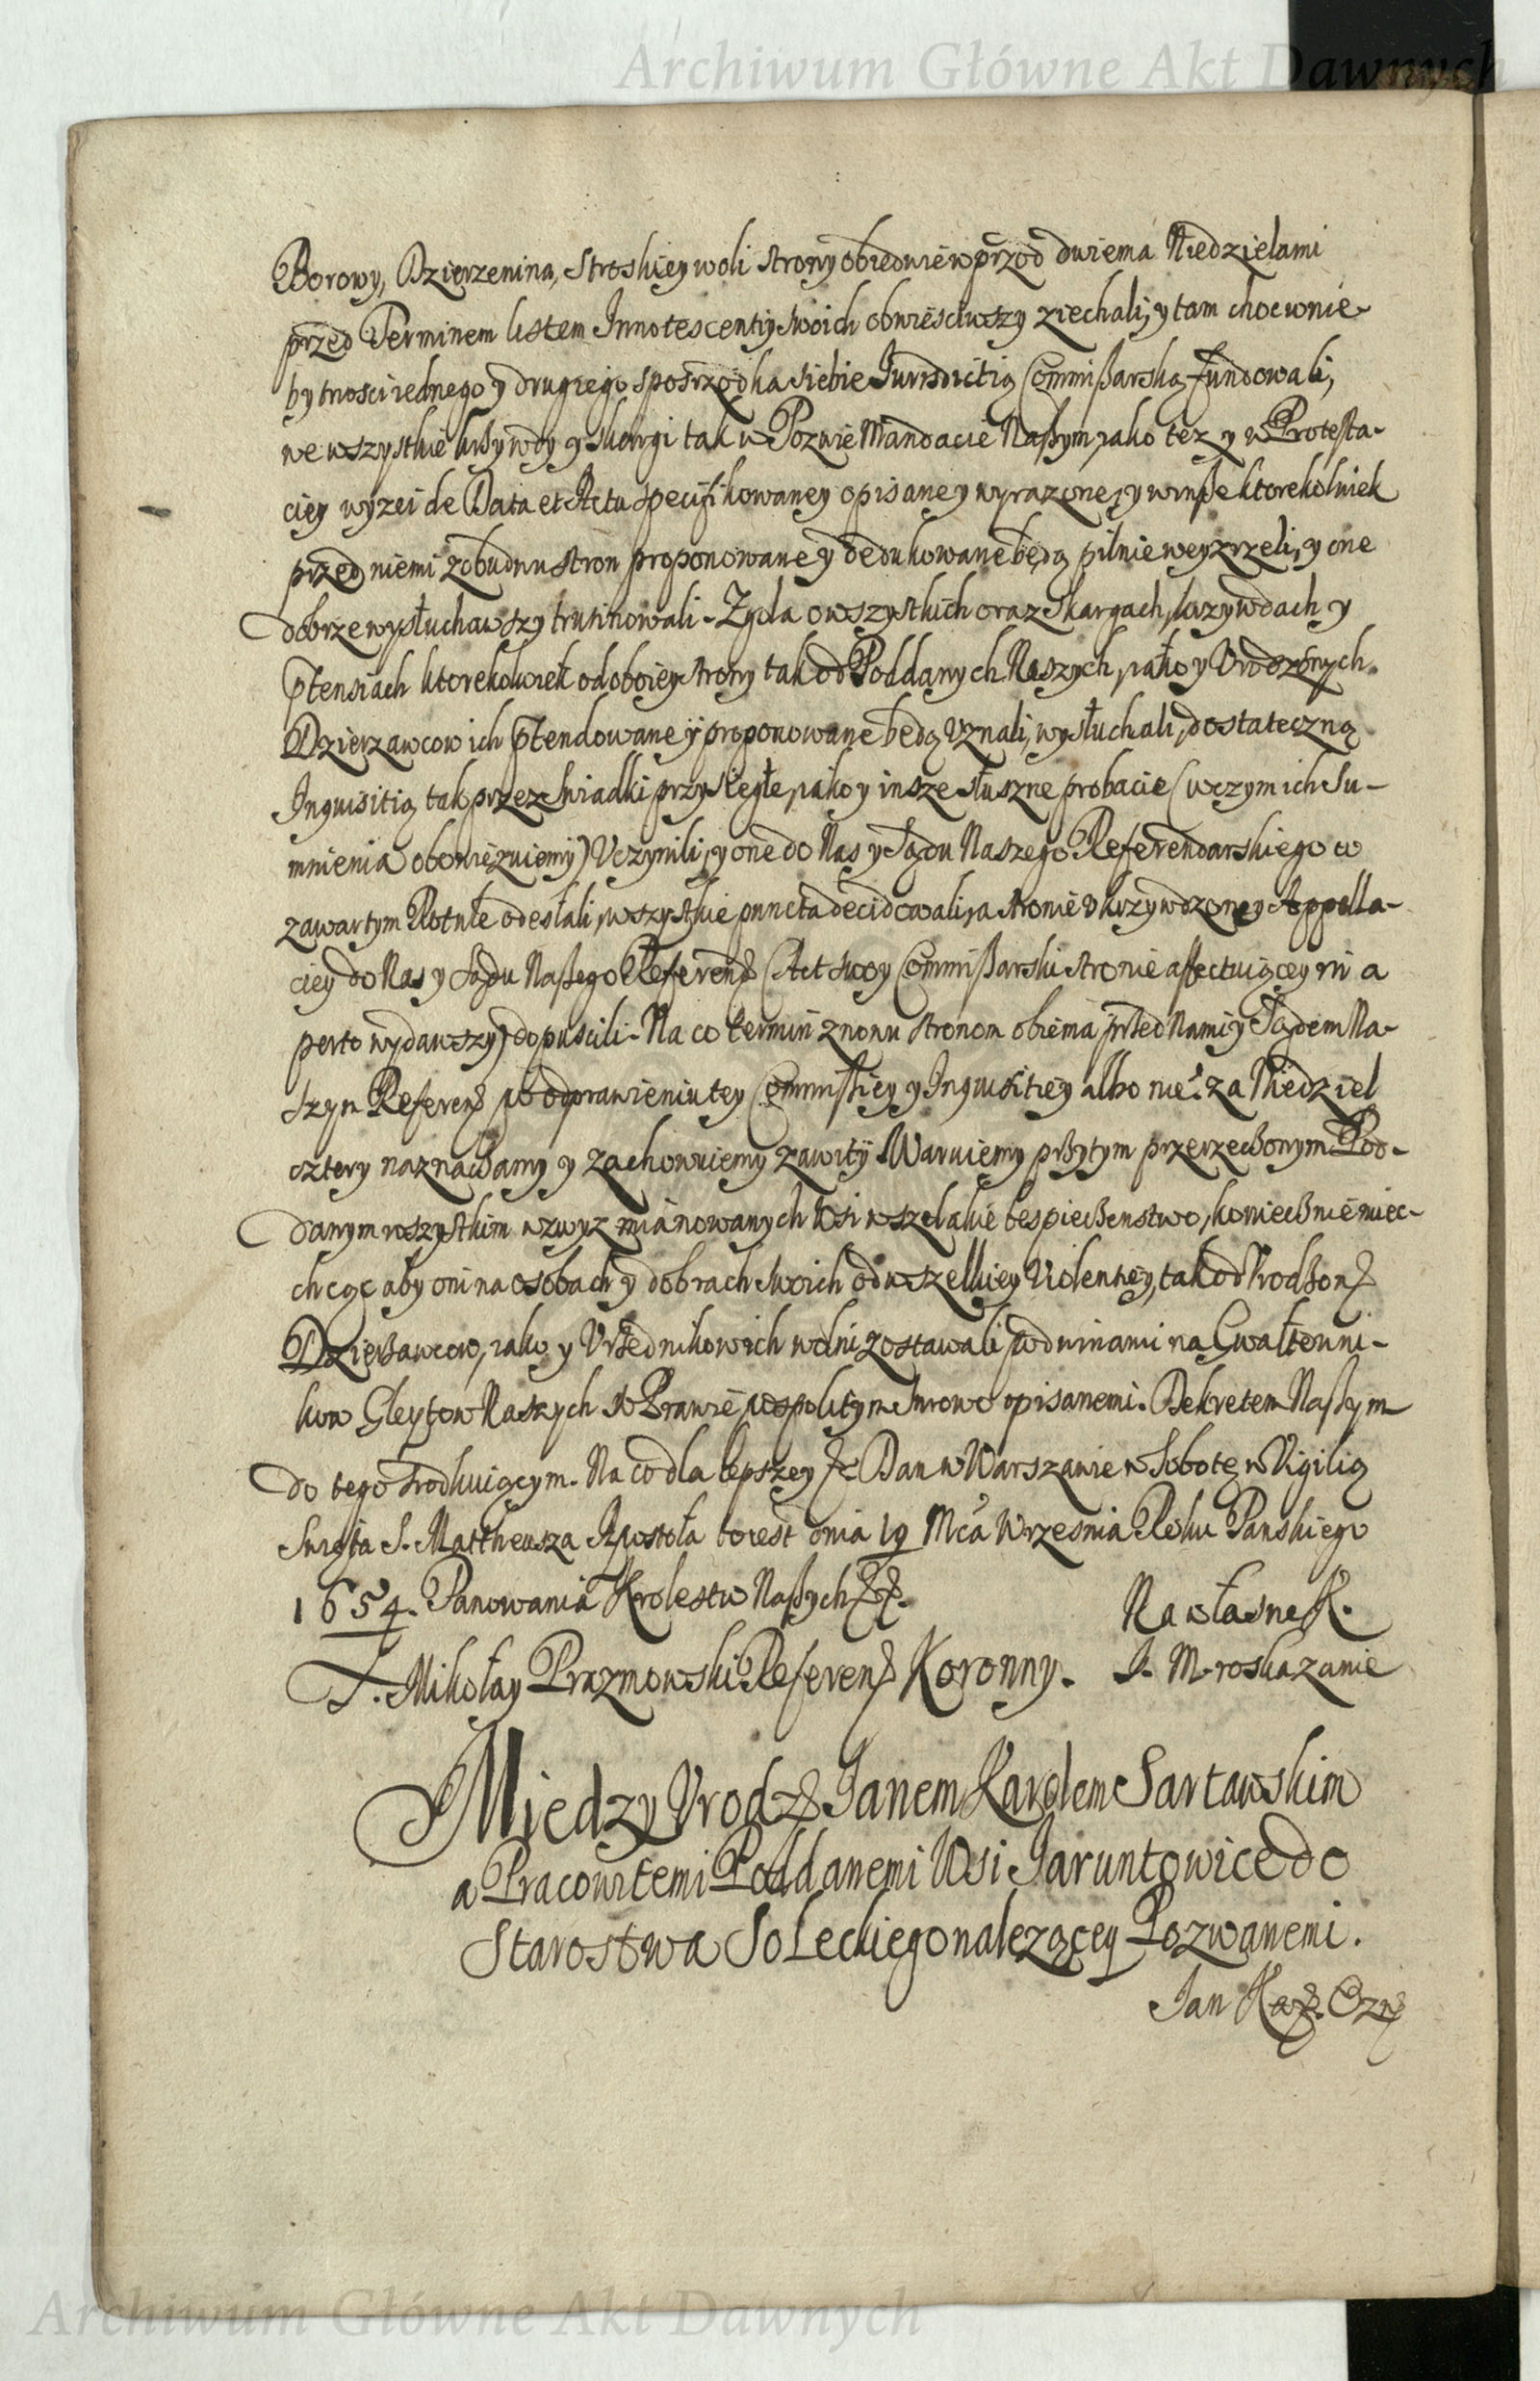 Archiwum Główne Akt Dawnych
Borowy, Dzierzenina, Stroskiey woli strony obiedwie wprzod dwiema Niedzielami
przed Terminem listem Innotescentiy swoich obwiesciwszy ziechali, y tam choc w nie-
bytnosci iednego y drugiego sposrzodka siebie Jurisdictią Commißarską fundowali,
we wszystkie krzywdy y skargi tak w Pozwie Mandacie Naßym, iako tez y w Protesta-
ciey wyzei de Data et Actu specifikowaney opisane y wyrazone, y w inße ktorekolwiek
przed niemi z obudwu stron proponowane y dedukowane będą pilnie weyzrzeli, y one
dobrze wysłuchawszy trutinowali. Zgoła o wszystkich oraz skargach, krzywdach y
ptensiach ktorekolwiek od oboiey strony tak od Poddanych Naszych, iako y Urodzonych
Dzierzawcow ich ptendowane y proponowane będą uznali, wysłuchali, dostateczną
Inquisitią tak przez swiadki przysięgłe, iako y insze słuszne probacie (w czym ich Su-
mnienia obowięzuiemy) Uczynili, y one do Nas y Sądu Naszego Referendarskiego w
zawartym Rotule odesłali, wszystkie puncta decidowali, a stronie ukrzywdzoney Appella-
ciey do Nas y Sądu Naßego Referend (Act swoy Commißarski stronie affectuiącey in a
perto wydawszy) dopuscili. Na co termin znowu stronom obiema przed Nami y Sądem Na-
szym Referend po odprawieniu tey Commissiey y Inquisitiey albo nie: za Niedziel
cztery naznaczamy y zachowuiemy zawity. Waruiemy przytym przerzeczonym Pod-
danym wszystkim wzwyz mianowanych Wsi wszelakie bespieczenstwo, koniecznie miec
chcąc aby oni na osobach y dobrach swoich od wszelkiey Violentiey, tak od Urodzon
Dzierzawcow, iako y Urzednikow ich wolni zostawali pod winami na Gwałtowni-
kow Gleytow Naszych w Prawie pospolitym surowo opisanemi. Dekretem Naßym
do tego srodkuiącym. Na co dla lepszey &c Dan w Warszawie w Sobotę w Vigilią
Swięta S. Mattheusza Apostoła to iest dnia 19 Mca Wrzesnia Roku Panskiego
1654. Panowania Krolestw Naßych &&.
Na własne K.
J. M. roskazanie
X. Mikołay Prazmowski Referend Koronny.
Miedzy Urodz Janem Karolem Sartawskim
a Pracowitemi Poddanemi Wsi Jaruntowice do
Starostwa Soleckiego nalezącey Pozwanemi.
Jan Kaz.
Archiwum Główne Akt Dawnych